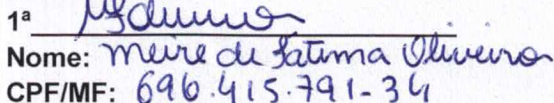 1ª
Nome: Meire de Fatima Oliveira
CPF/MF: 696.415.791-34